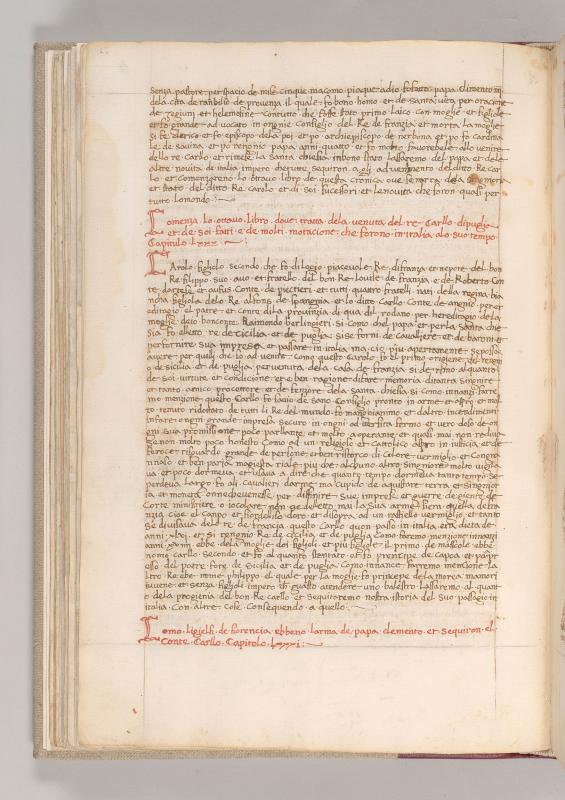 senza pastore per spacio de misi cinque ma como piaque a dio fo fatto papa clemento iiij
dela cita de de provenza il quale fo bono homo et de santa vita per oracione
de et helemosine contutto che fosse stato primo laico con moglie et figliole
et fo grande advocato in ongnie consiglio del Re de franzia et morta la moglie
si fe clerico et fo episcopo et poi archiepiscopo de nerbona et po fo Cardina
le de savina et po papa anni quatro et fo molto favorebele allo venire
dello re Carllo et rimese la santa chiesia inbono stato lassaremo del papa et dele
altre novita de italia impero che tutte sequiron a gli advenimento del ditto Re Car
lo et Comenzaremo lo ottavo libro de questa cronica ove
et stato del ditto Re Carolo et di soi sucessori et le novita che foron quasi per
tutto lo mondo
Comenza lo ottavo Libro dove tratta dela venuta del re Carllo di puglia
et de soi fatti e de molti motacione che forono in italia a lo suo tempo
Capitulo Lxxx
Carolo figliolo secondo che fo di Logio piacevole Re di franza et nepote del bon
Re filippo suo avo et fratello del bon Re Lovise de franzia e de Roberto Con
te dartese et Conte de pictieri et tutti quatro fratelli nati dela regina bia
ncha figliola delo Re alfons de et lo ditto Carllo Conte de angio per
el patre et Conte di la provinzia di qua dil rodano per hereditagio de la
moglie Raimondo berlingieri si como del papa et per la santa chie
sia fo eletto re de Cicilia et de puglia si se forni de cavalieri et de baroni et
per fornire sua impresa et passare in italia ma piu apertamente se possa
savere per quelli che so ad venire como questo Carolo fo el primo origine de regni
de sicilia et de puglia per venuta dela casa de franzia si de a quanto
de soi virtute et condicione et e ben ragione di fare memoria di tanto singniore
et tanto amico et defensore dela santa chiesia si como innanzi farre
mo menzione questo Carllo fo savio de sano Consiglio pronto in arme et aspro et mol
to temuto ridottato de tutti li Re del mondo fo mangnianimo et dalto intendimenti
in fare ongni grande impresa securo in ongni adversita fermo et vero de on
gni sua promissione poco parllante et molto aoperante et quasi mai non
se non molto poco honesto como ad un religioso et cattolico aspro in iusticia et de
feroce risguardo grande de persone et ben Colore vermiglio et
nasolo et ben paria magiesta riale piu che alchuno altro singniore molto veglia
va et poco dormeva et usava a dire che quanto tempo dormeva tanto tempo se
perdeva Largo fo ali cavalieri darme ma cupido de aquistare terra et singnior
ia et moneta onnechevenesse per diffinire sue imprese et guerre de giente de
Corte ministriere o iocolare non se dilettò mai La sua arme fiera quella de fra
nzia cioe el Canpo et fiordeliso doro et di sopra ad un rastello vermiglio et tanto
se divisava dal re de francia questo Carllo quan passò in italia era d eta de
anni xlvi et si rengnio Re de cicilia et de puglia como faremo menzione innanzi
anni xviiij ebbe dela moglie doi figlioli et piu figliole il primo de mascole ebbe
nome Carllo secondo et fo alquanto sciancato et fo prencepe de Capoa et
osso del patre fore de Sicilia et de puglia Como innance farremo mencione la
ltro Re ebe nome philippo el quale per la moglie fo principe dela morea ma mori
iuvene et senza figlioli impero ch guasto atendere uno balestro Lassaremo al quan
o dela progienia del bon Re carllo et sequitaremo nostra istoria del suo passagio in
italia Con altre cose consequendo a quello
Como ligielfi de fiorencia ebbeno larma de papa clemento et sequiron el
Conte Carllo Capitolo Lxxxi